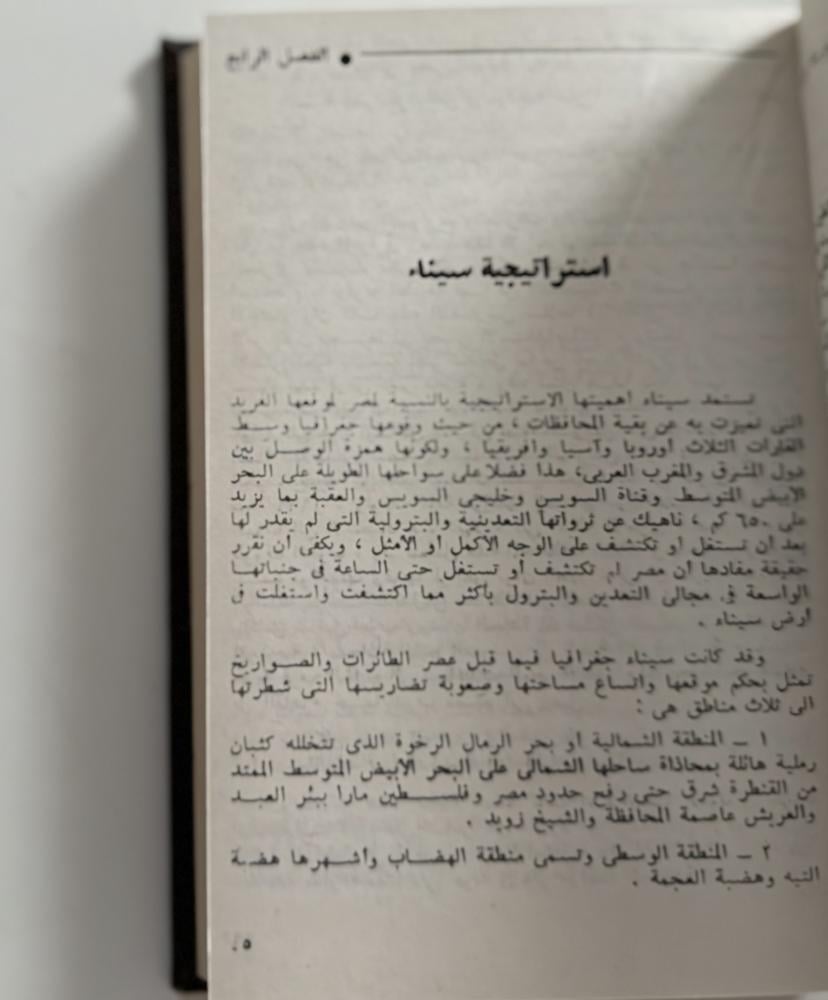 الفصل الرابع
استراتيجية سيناء
تستمد سيناء أهميتها الاستراتيجية بالنسبة لمصر لموقعها الفريد
التى تميزت به عن بقية المحافظات ، من حيث وقوعها جغرافيا وسط
القارات الثلاث أوروبا وآسيا وأفريقيا ، ولكونها همزة الوصل بين
دول المشرق والمغرب العربى، هذا فضلا على سواحلها الطويلة على البحر
الأبيض المتوسط وقناة السويس وخليجى السويس والعقبة بما يزيد
على ٦٥٠ كم ، ناهيك عن ثرواتها التعدينية والبترولية التى لم يقدر لها
بعد أن تستغل أو تكتشف على الوجه الأكمل أو الأمثل ، ويكفى أن نقرر
حقيقة مفادها أن مصر لم تكتشف أو تستغل حتى الساعة فى جنباتها
الواسعة فى مجالى التعدين والبترول بأكثر مما اكتشفت واستغلت فى
أرض سيناء .
وقد كانت سيناء جغرافيا فيما قبل عصر الطائرات والصواريخ
تمثل بحكم موقعها واتساع مساحتها وصعوبة تضاريسها التى شطرتها
الى ثلاث مناطق هى :
١ ـ المنطقة الشمالية أو بحر الرمال الرخوة الذى تتخلله كثبان
رملية هائلة بمحاذاة ساحلها الشمالى على البحر الأبيض المتوسط الممتد
من القنطرة شرق حتى رفح حدود مصر وفلسطين مارا ببئر العبد
والعريش عاصمة المحافظة والشيخ زويد .
٢ ـ المنطقة الوسطى وتسمى منطقة الهضاب وأشهرها هضبة
التيه وهضبة العجمة .
٥٠